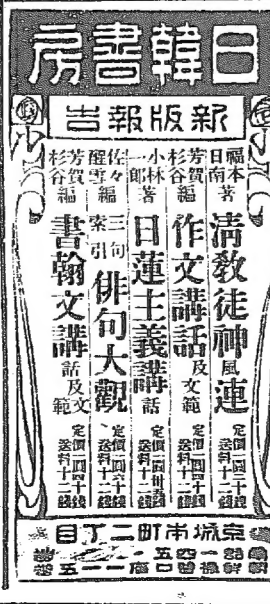 日韓書房
新版報告
福本日南著 清教徒神風連 定價一圓二十錢 送料十二錢
芳賀杉谷編 作文講話及文範 定價一圓四十錢 送料十二錢
小林一郎著 日蓮主義講話 定價一圓卅五錢 送料十二錢
佐々醒雪編 三句索引 俳句大觀 定價一圓六十錢 送料十二錢
芳賀杉谷編 書翰文講話及文範 定價一圓四十錢 送料十二錢
京城本町二丁目